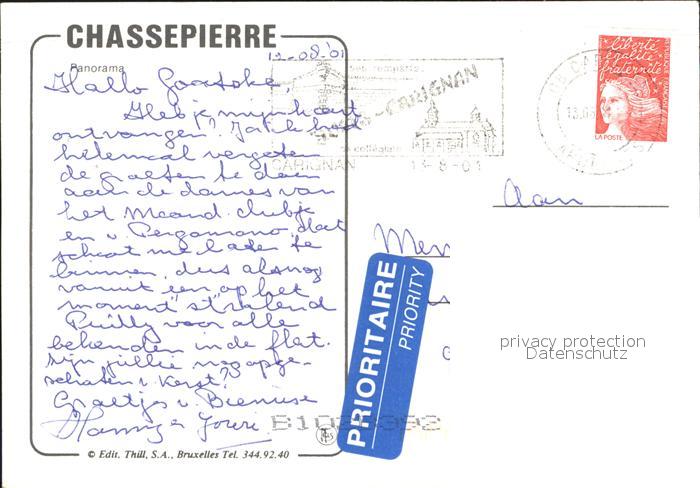 CHASSEPIERRE
Panorama
12-08-'01
Hallo
Heb je mijn kaart
ontvangen? Ja ik had
helemaal vergeten
de groeten te doen
aan de dames van
het Maand. clubje
en v. Pergamano, dat
schoot me later te
binnen, dus alsnog
vanuit een op het
moment "stralend
Puilly voor alle
bekenden in de flat.
Zijn jullie nog opge-
schoten v. Kerst?
Groetjes v. Bienuse
© Edit. Thill, S.A., Bruxelles Tel. 344.92.40
CARIGNAN
CARIGNAN 13-8-01
collégiale
liberté
égalité
fraternité
RÉPUBLIQUE FRANÇAISE
LA POSTE
Aan
PRIORITAIRE
PRIORITY
privacy protection
Datenschutz